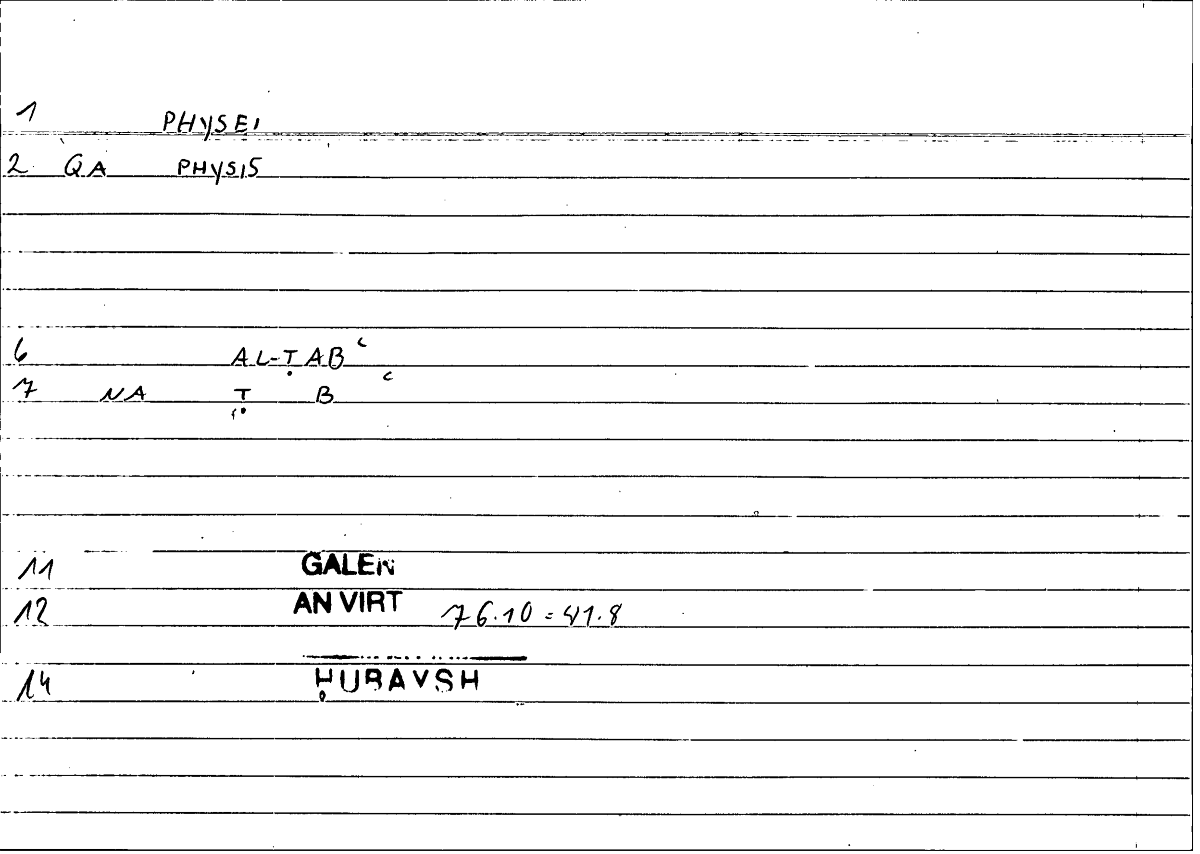 1 PHYSEI
2 QA PHYSIS
6 AL-ṬABʿ
7 NA Ṭ B ʿ
11 GALEN
12 AN VIRT 76.10 = 41.8
14 ḤUBAYSH